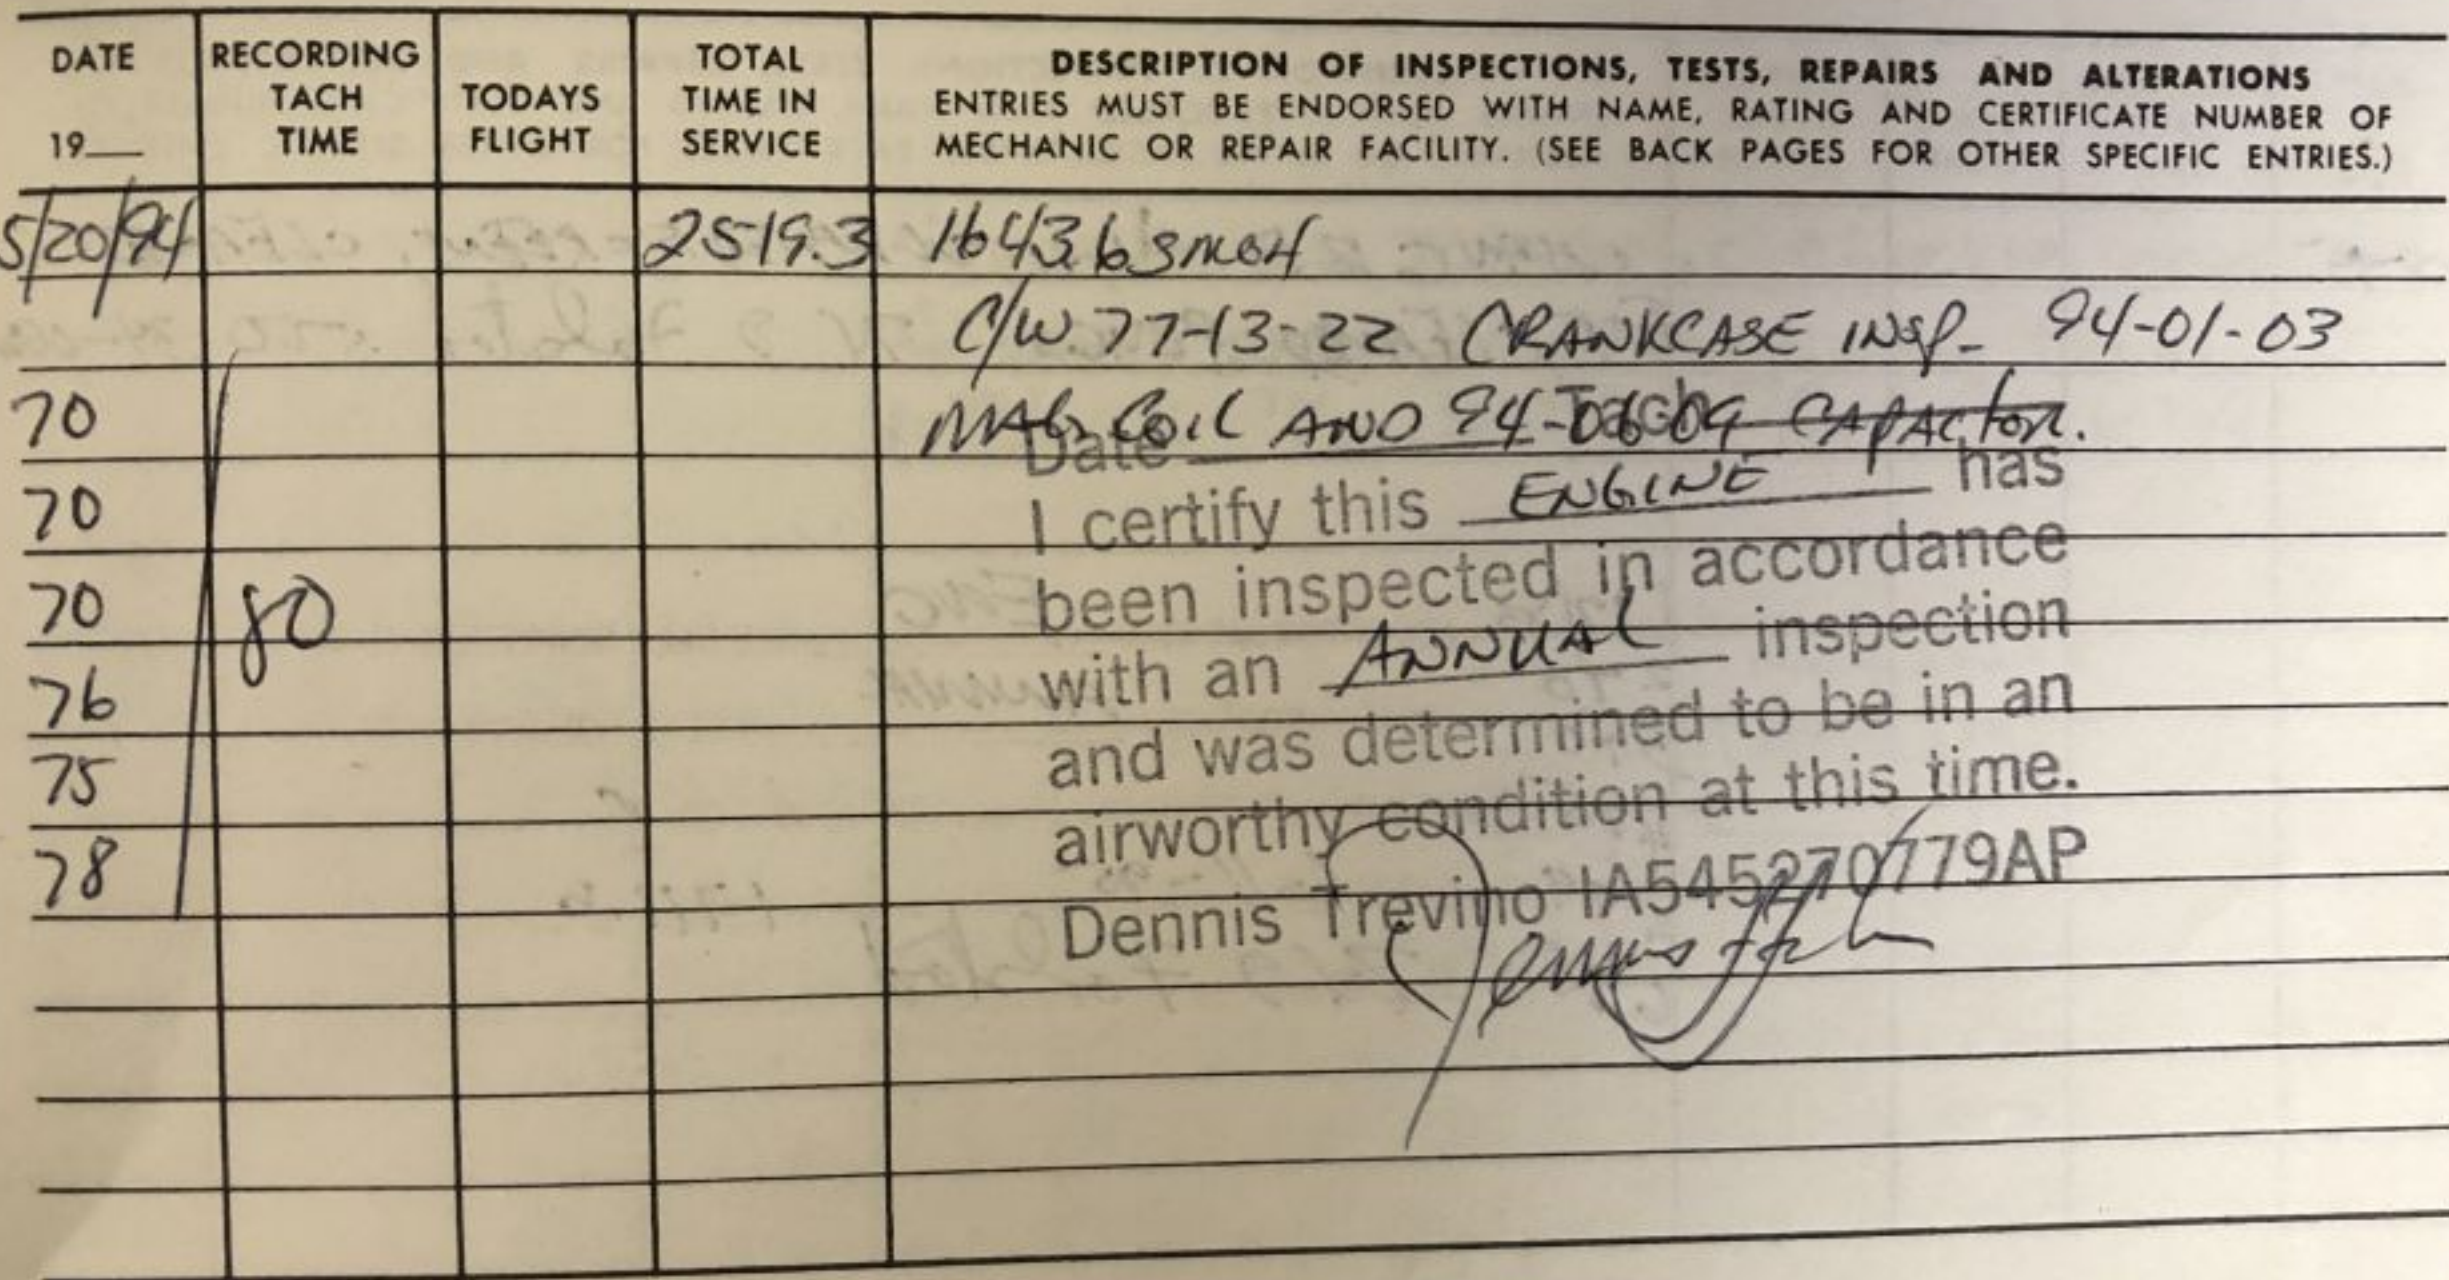 DATE
19__
RECORDING
TACH
TIME
TODAYS
FLIGHT
TOTAL
TIME IN
SERVICE
DESCRIPTION OF INSPECTIONS, TESTS, REPAIRS AND ALTERATIONS
ENTRIES MUST BE ENDORSED WITH NAME, RATING AND CERTIFICATE NUMBER OF
MECHANIC OR REPAIR FACILITY. (SEE BACK PAGES FOR OTHER SPECIFIC ENTRIES.)
5/20/94 2519.3 1643.6 SMOH
C/W 77-13-22 CRANKCASE INSP- 94-01-03
MAG COIL AND 94-06-09 CAPACTOR.
Date Tach
I certify this ENGINE has
been inspected in accordance
with an ANNUAL inspection
and was determined to be in an
airworthy condition at this time.
Dennis Trevino IA545270779AP
70
70
70
80
76
75
78